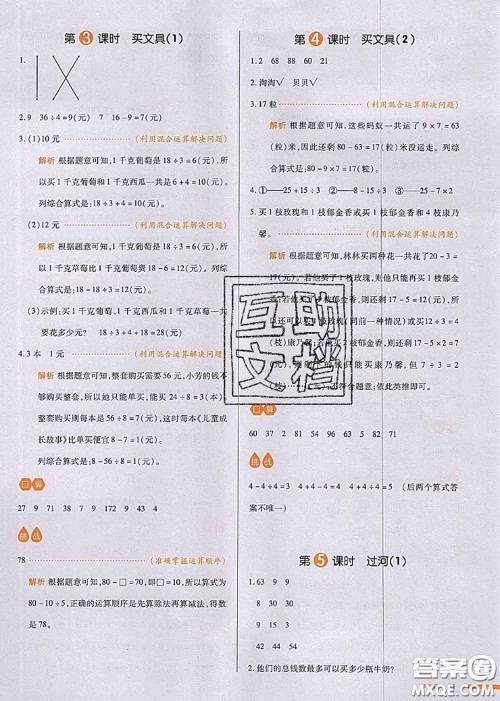 第3课时 买文具(1)
1.
2.9 36÷4=9(元) 7 16-9=7(元)
3.(1)10元 (利用混合运算解决问题)
解析 根据题意可知,1千克葡萄是18÷3=6(元),所
以买1千克葡萄和1千克西瓜一共是6+4=10(元)。
综合算式是:18÷3+4=10(元)
(2)12元 (利用混合运算解决问题)
解析 根据题意可知,1千克葡萄是18÷3=6(元),所
以1千克草莓比1千克葡萄贵18-6=12(元)。综合
算式是:18-18÷3=12(元)
(3)示例:买1千克西瓜和1千克草莓一共
要花多少元? 4+18=28(元)
4.3本 1元 (利用混合运算解决问题)
解析 根据题意可知,整套购买需要56元,小芳的钱不
够购买整套,所以只能单买,她能买24÷8=3(本)。
整套购买则每本是56÷8=7(元),这时每本《儿童成
长故事》比单买便宜8-7=1(元)。
列综合算式是:8-56÷8=1(元)
口算
27 9 71 38 7 172 9 43 4
挑战
78 (准确掌握运算顺序)
解析 根据题意可知,80-□=70,即□=10,所以算式为
80-10÷5,正确的运算顺序是先算除法再算减法,得
数是78。
第4课时 买文具(2)
1.2 68 88 60 21
2.淘淘√ 贝贝√
3.17粒 (利用混合运算解决问题)
解析 根据题意可知,这些蚂蚁一共运了9×7=63
(粒)米,因此还剩80-63=17(粒)米没运走。列综
合算式是:80-9×7=17(粒)
4.①——25+15÷3 ②——25-15÷3 ③——25-7×2
5.买1枝玫瑰和1枝郁金香或买1枝郁金香和4枝康乃
馨。 (利用混合运算解决问题)
解析 根据题意可知,林林买两种花一共花了20-3=
17(元)。若他买1枝玫瑰,则他只能再买1枝郁金
香;若他
一共17元,符合题意,列
综合算式
4(枝)康乃馨
2(枝)
符合题意。依此类推即可。
口算
60 37 32 71 54 96 63 5 82 71
挑战
4-4÷4=3 4×4÷4=4 (后两个算式答
案不唯一)
第5课时 过河(1)
1.63 9 9
9 30 30
42 44 54
2.他们的总钱数最多可以买多少瓶牛奶?
互助
文档
答案圈
MXQE.COM